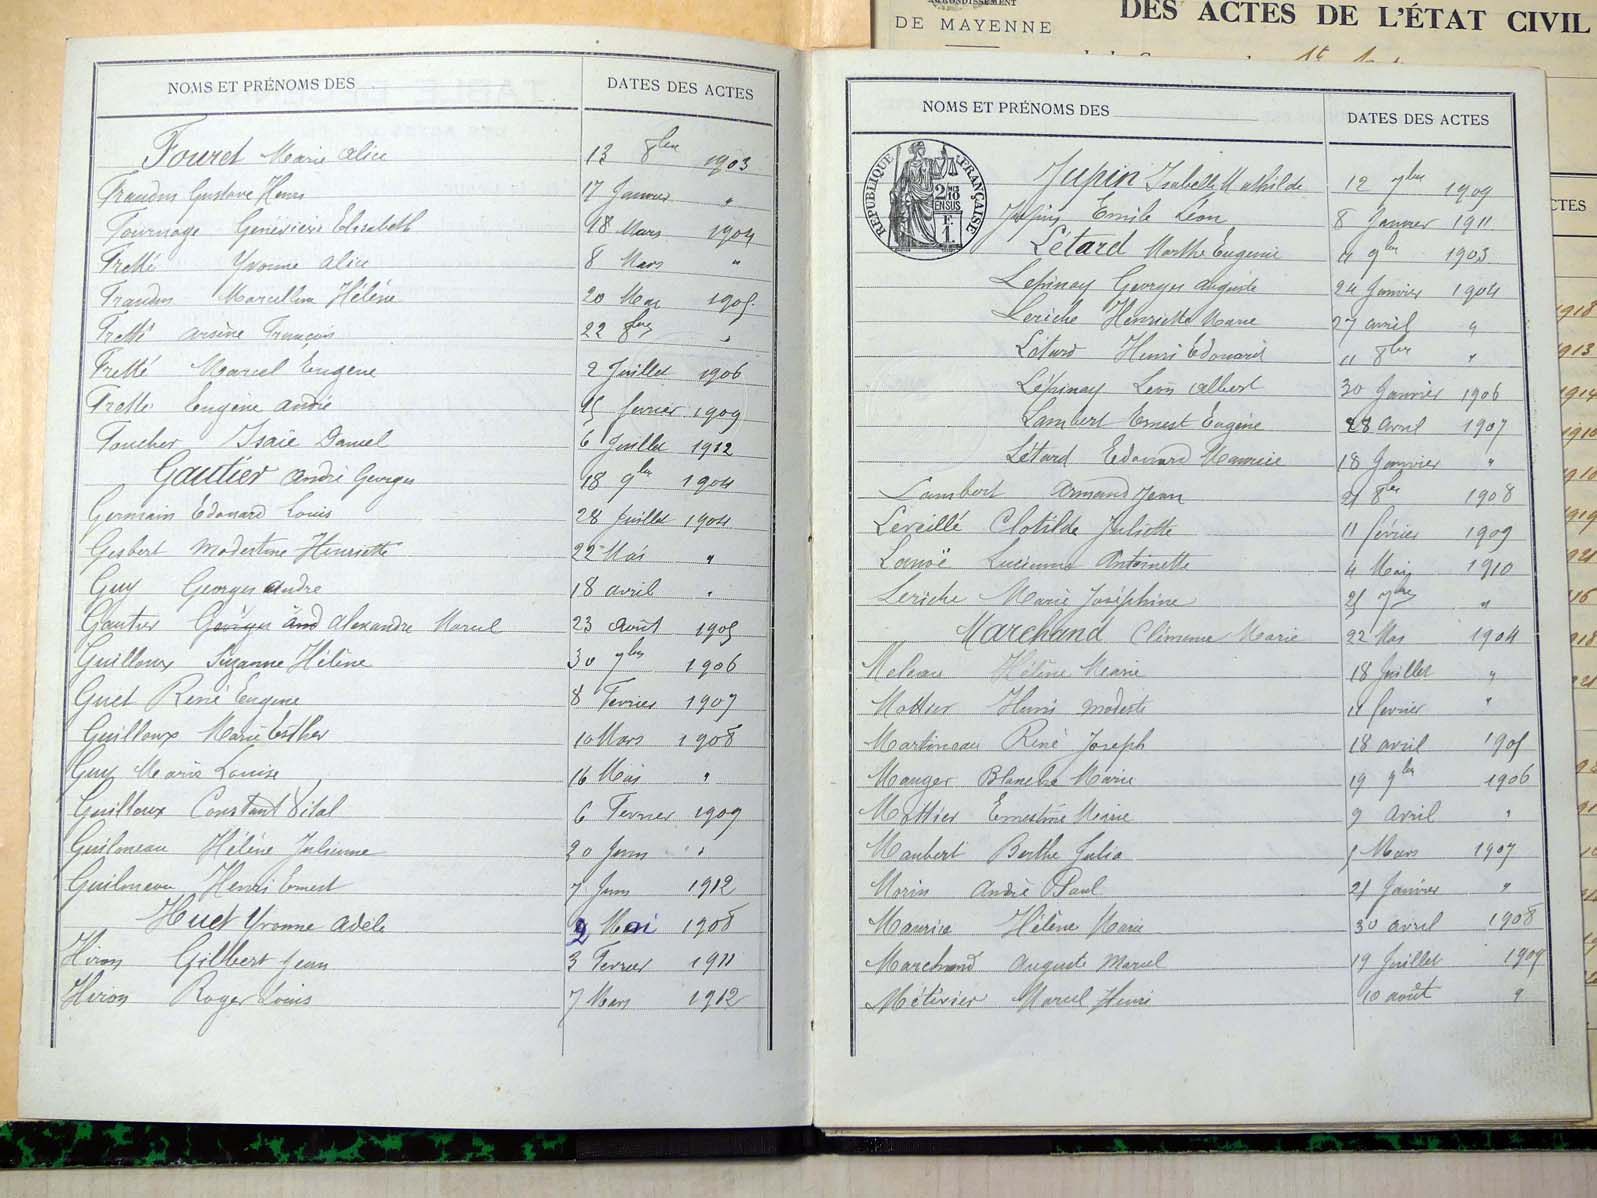 NOMS ET PRÉNOMS DES DATES DES ACTES
Fouret Marie Alice 13 8bre 1903
Fraudin Gustave Henri 17 Janvier "
Fournage Geneviève Elisabeth 18 Mars 1904
Fretté Yvonne Alice 8 Mars "
Fraudin Marcelline Hélène 20 Mai 1905
Fretté Arsène François 22 8bre "
Fretté Marcel Eugène 2 Juillet 1906
Fretté Eugène André 15 février 1909
Foucher Isaïe Daniel 6 Juillet 1912
Gautier André Georges 18 9bre 1904
Germain Edouard Louis 28 Juillet 1904
Gesbert Modestine Henriette 22 Mai "
Guy Georges André 18 avril "
Gautier Georges And Alexandre Marcel 23 Août 1905
Guilloux Suzanne Hélène 30 7bre 1906
Guet René Eugène 8 Fevrier 1907
Guilloux Marie Esther 10 Mars 1908
Guy Marie Louise 16 Mai "
Guilloux Constant Vital 6 Fevrier 1909
Guiloineau Hélène Julienne 20 Juin "
Guiloineau Henri Ernest 7 Juin 1912
Huet Yvonne Adèle 2 Mai 1908
Hiron Gilbert Jean 3 Fevrier 1911
Hiron Roger Louis 7 Mars 1912
NOMS ET PRÉNOMS DES DATES DES ACTES
RÉPUBLIQUE FRANÇAISE
2/10 EN SUS
F.
1.
Jupin Isabelle Mathilde 12 7bre 1909
Jupin Emile Léon 8 Janvier 1911
Létard Marthe Eugénie 4 9bre 1903
Lépinay Georges Auguste 24 Janvier 1904
Leriche Henriette Marie 27 avril "
Létard Henri Edouard 11 8bre "
Lépinay Léon Albert 30 Janvier 1906
Lambert Ernest Eugène 28 Avril 1907
Létard Edouard Maurice 18 Janvier "
Lambert Armand Jean 21 8bre 1908
Leveillé Clotilde Juliette 11 février 1909
Lanoë Lucienne Antoinette 4 Mai 1910
Leriche Marie Joséphine 25 7bre "
Marchand Clémence Marie 22 Mai 1904
Meleau Hélène Marie 18 Juillet "
Mottier Henri Modeste 11 fevrier "
Martineau René Joseph 18 avril 1905
Mauger Blanche Marie 19 9bre 1906
Mottier Ernestine Marie 9 Avril "
Maubert Berthe Julia Mars 1907
Morin André Paul 21 Janvier "
Maurice Hélène Marie 30 avril 1908
Marchand Auguste Marcel 19 Juillet 1909
Métivier Marcel Henri 10 août "
DE MAYENNE
DES ACTES DE L'ÉTAT CIVIL